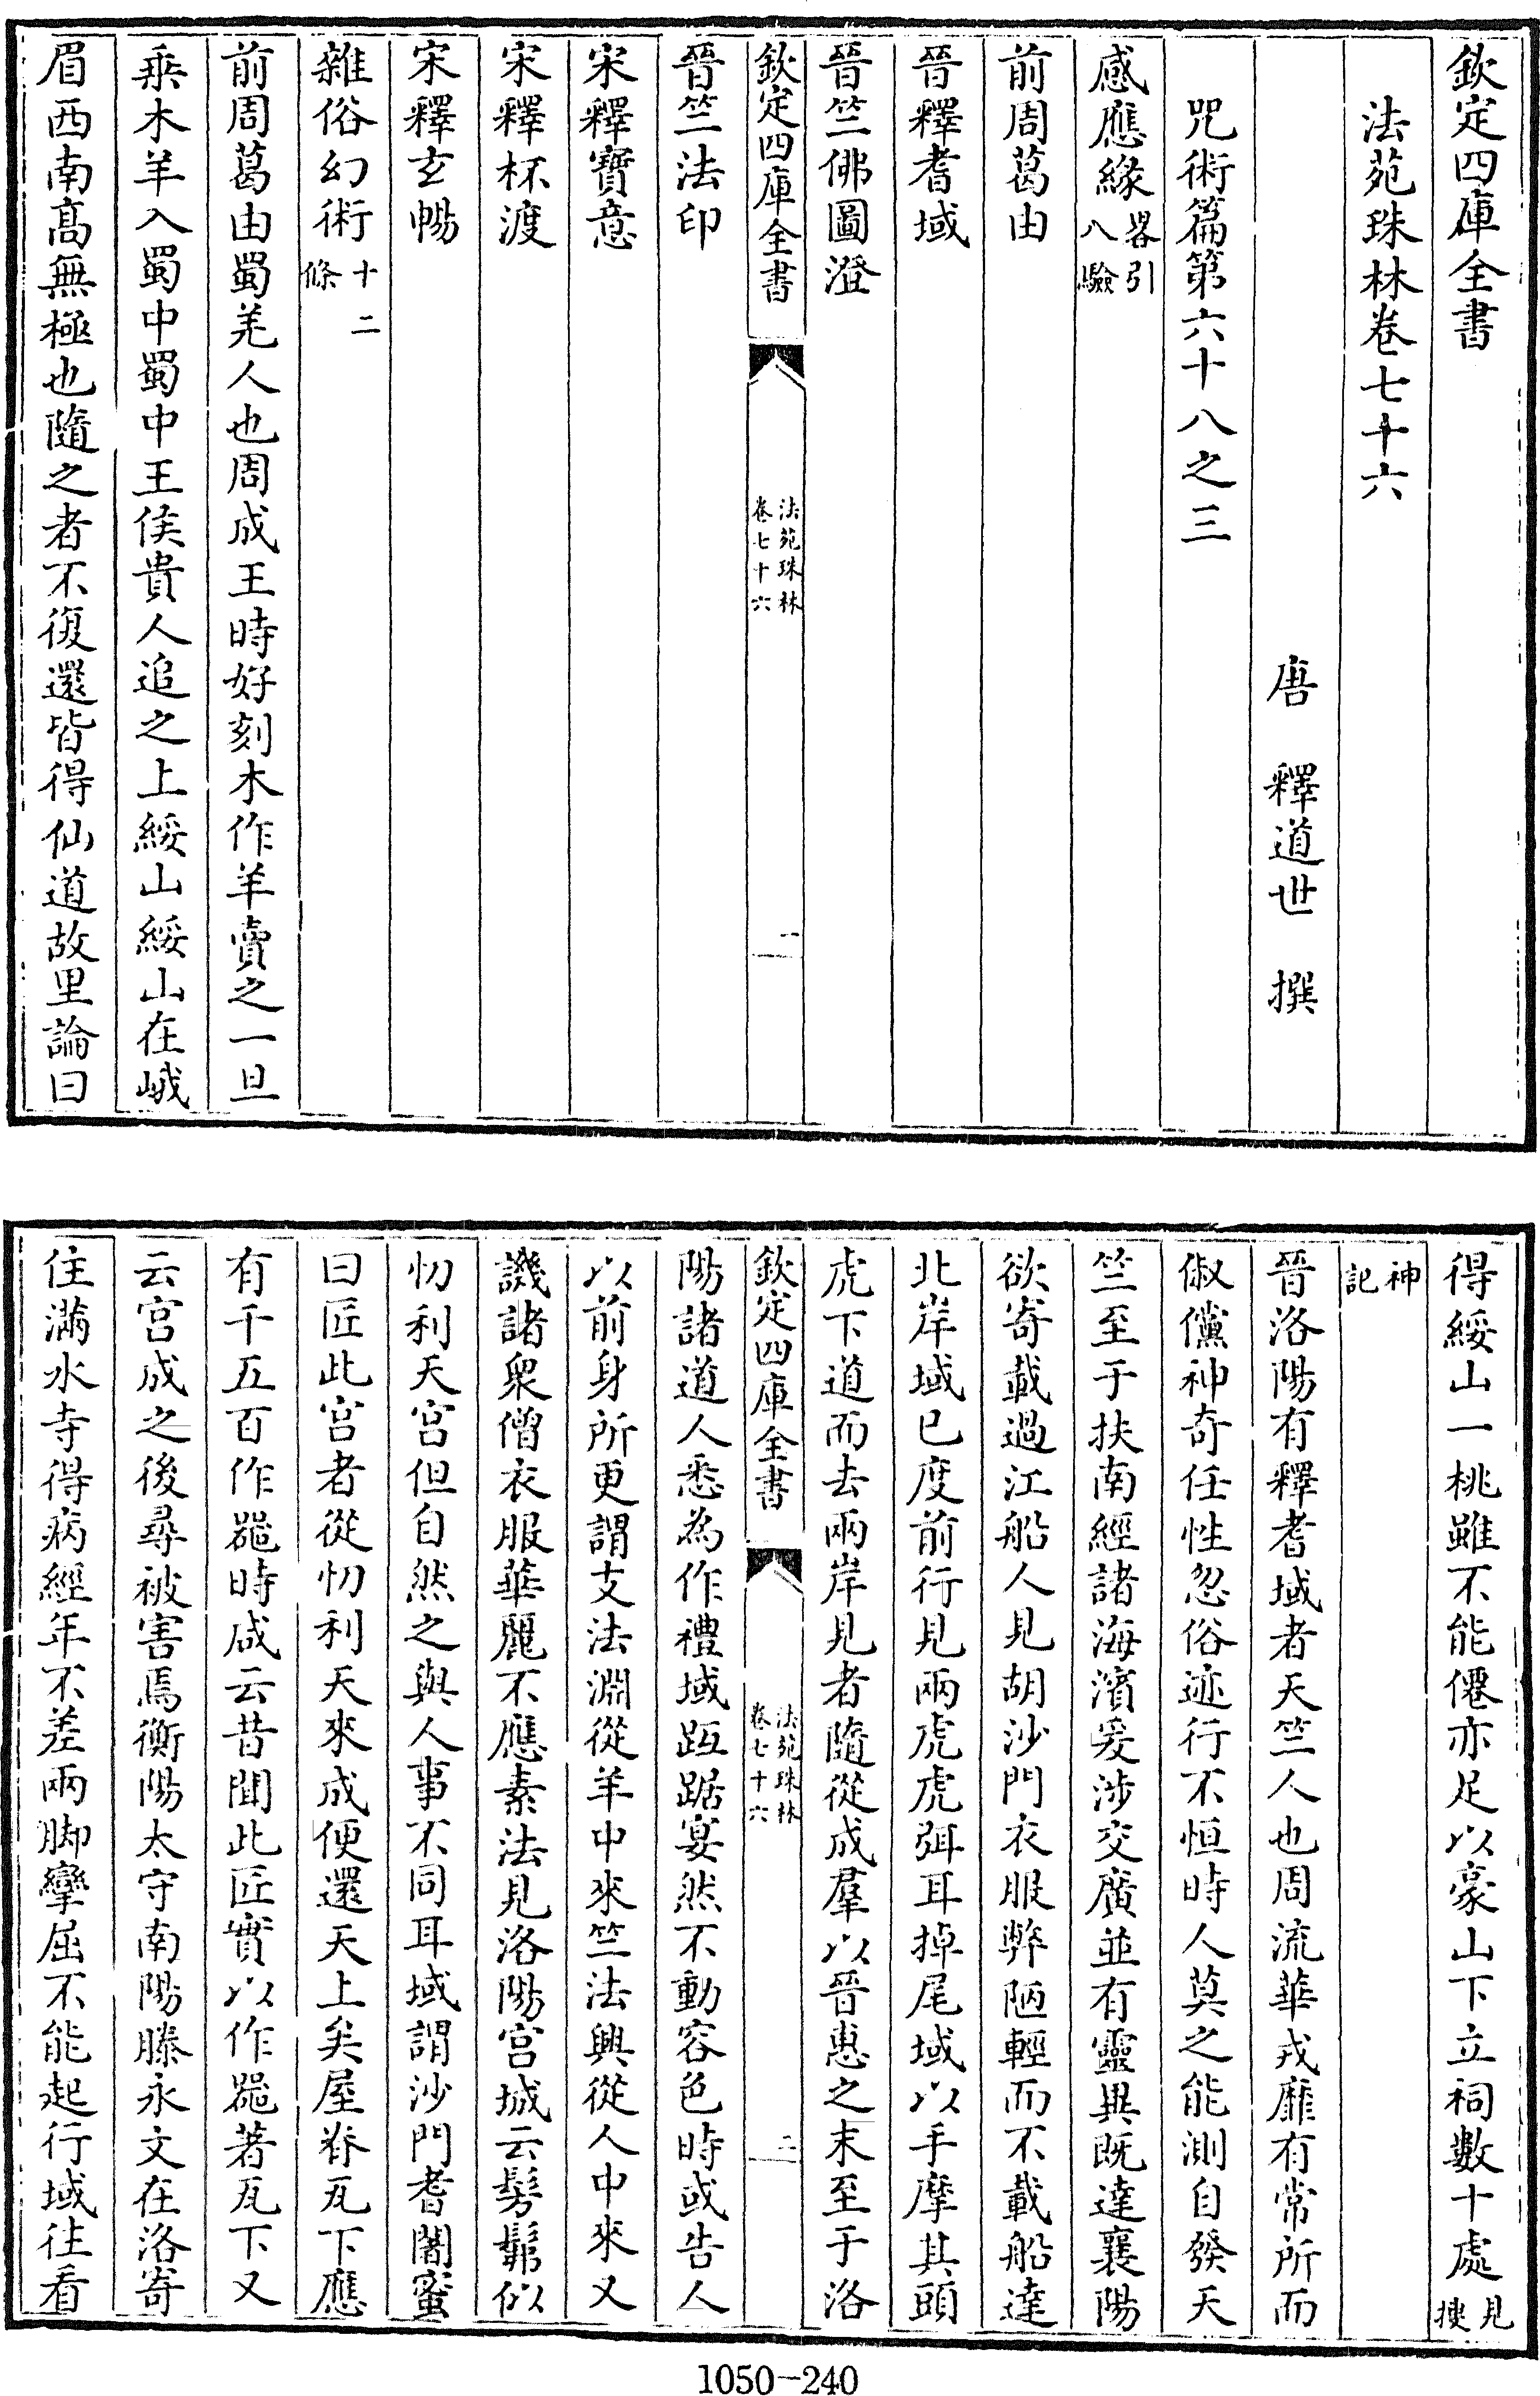 欽定四庫全書
法苑珠林卷七十六
唐 釋道世 撰
咒術篇第六十八之三
感應緣畧引八驗
前周葛由
晉釋耆域
晉竺佛圖澄
欽定四庫全書 法苑珠林卷七十六 一
晉竺法印
宋釋寶意
宋釋杯渡
宋釋玄暢
雜俗幻術十二條
前周葛由蜀羌人也周成王時好刻木作羊賣之一旦
乗木羊入蜀中蜀中王侯貴人追之上綏山綏山在峨
眉西南髙無極也隨之者不復還皆得仙道故里論曰
得綏山一桃雖不能僊亦足以豪山下立祠數十處見搜
神記
晉洛陽有釋耆域者天竺人也周流華戎靡有常所而
俶儻神奇任性忽俗迹行不恒時人莫之能測自發天
竺至于扶南經諸海濱爰涉交廣並有靈異既達襄陽
欲寄載過江船人見胡沙門衣服弊陋輕而不載船達
北岸域已度前行見兩虎虎弭耳掉尾域以手摩其頭
虎下道而去兩岸見者隨從成羣以晉惠之末至于洛
欽定四庫全書 法苑珠林卷七十六 二
陽諸道人悉為作禮域踑踞宴然不動容色時或告人
以前身所更謂支法淵從羊中來竺法興從人中來又
譏諸衆僧衣服華麗不應素法見洛陽宫城云髣髴似
忉利天宫但自然之與人事不同耳域謂沙門耆闍蜜
曰匠此宫者從忉利天來成便還天上矣屋脊瓦下應
有千五百作器時咸云昔聞此匠實以作器著瓦下又
云宫成之後尋被害焉衡陽太守南陽滕永文在洛寄
住滿水寺得病經年不差兩脚攣屈不能起行域往看
1050-240